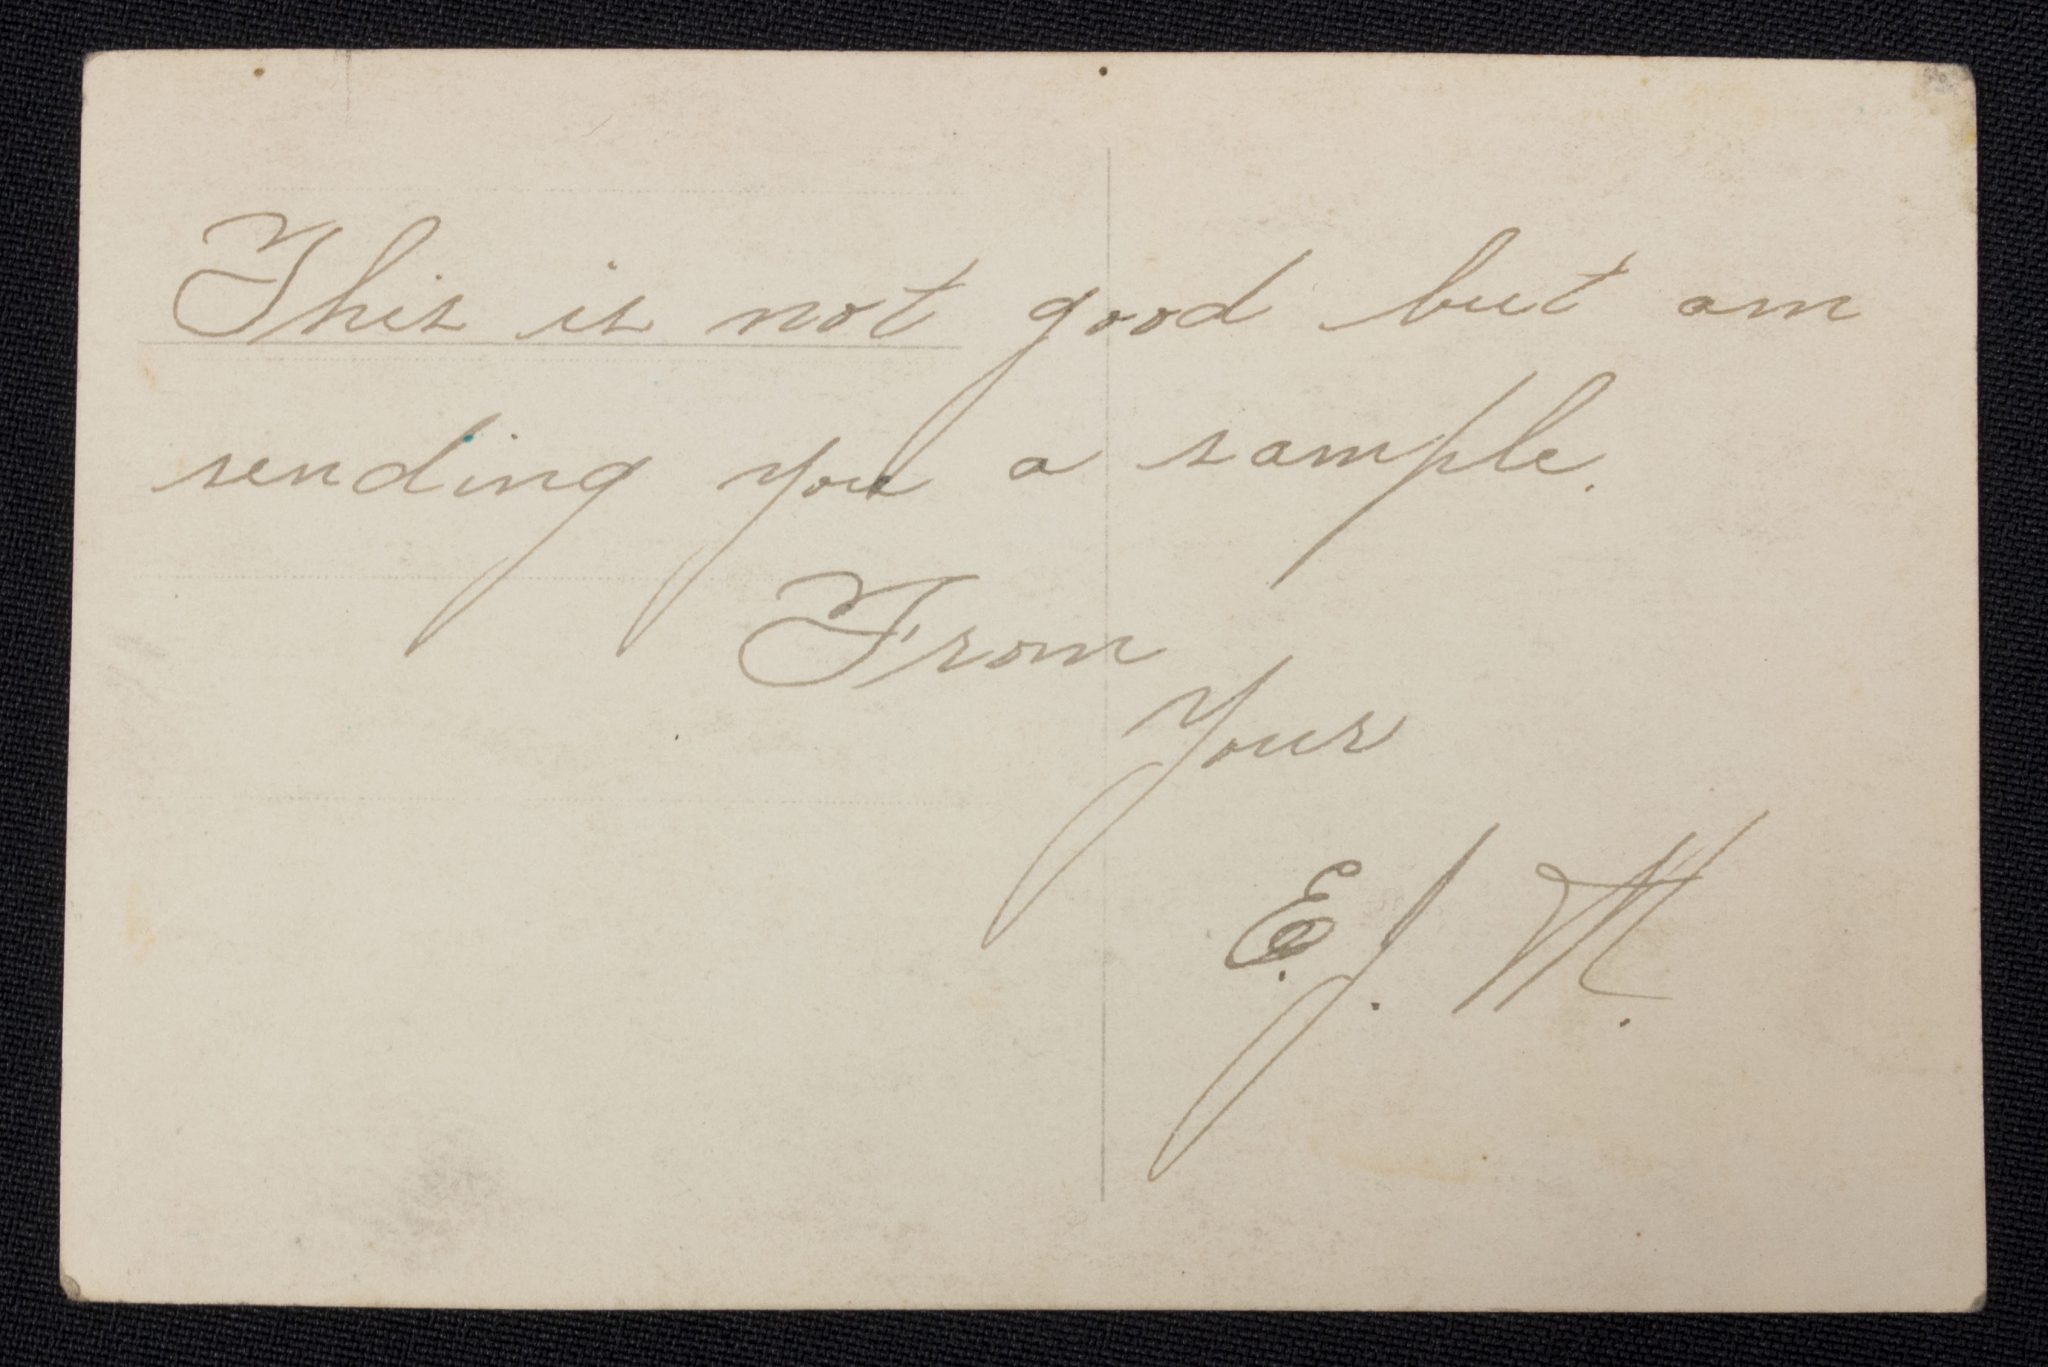 This is not good but am
sending you a sample.
From
Your
E. J. M.